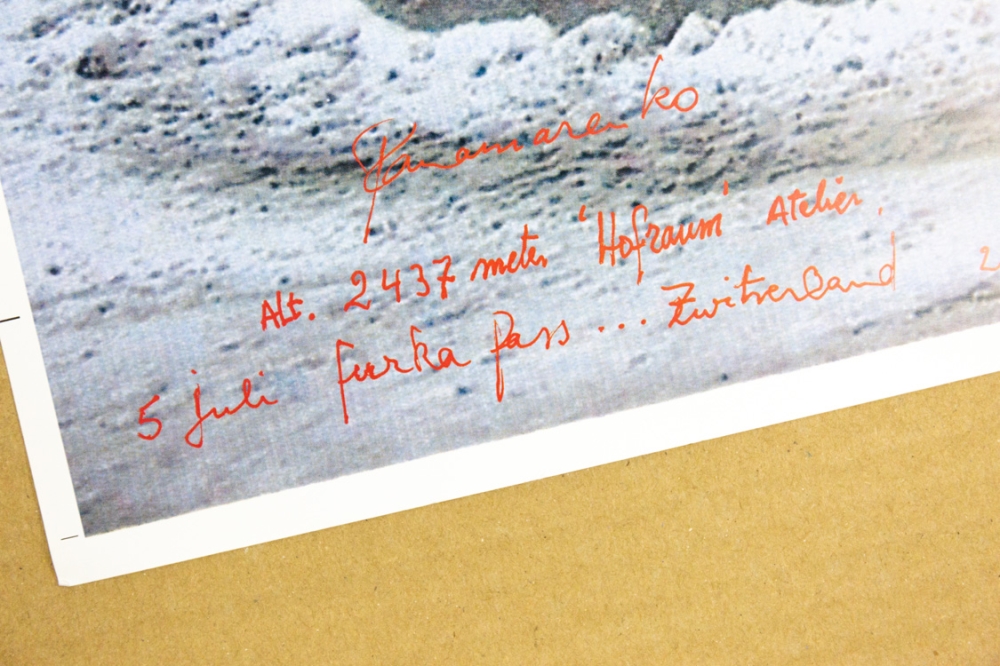 Panamarenko
Alt. 2437 meter 'Hofraum' Atelier.
5 juli furka pass ... Zwitserland 2